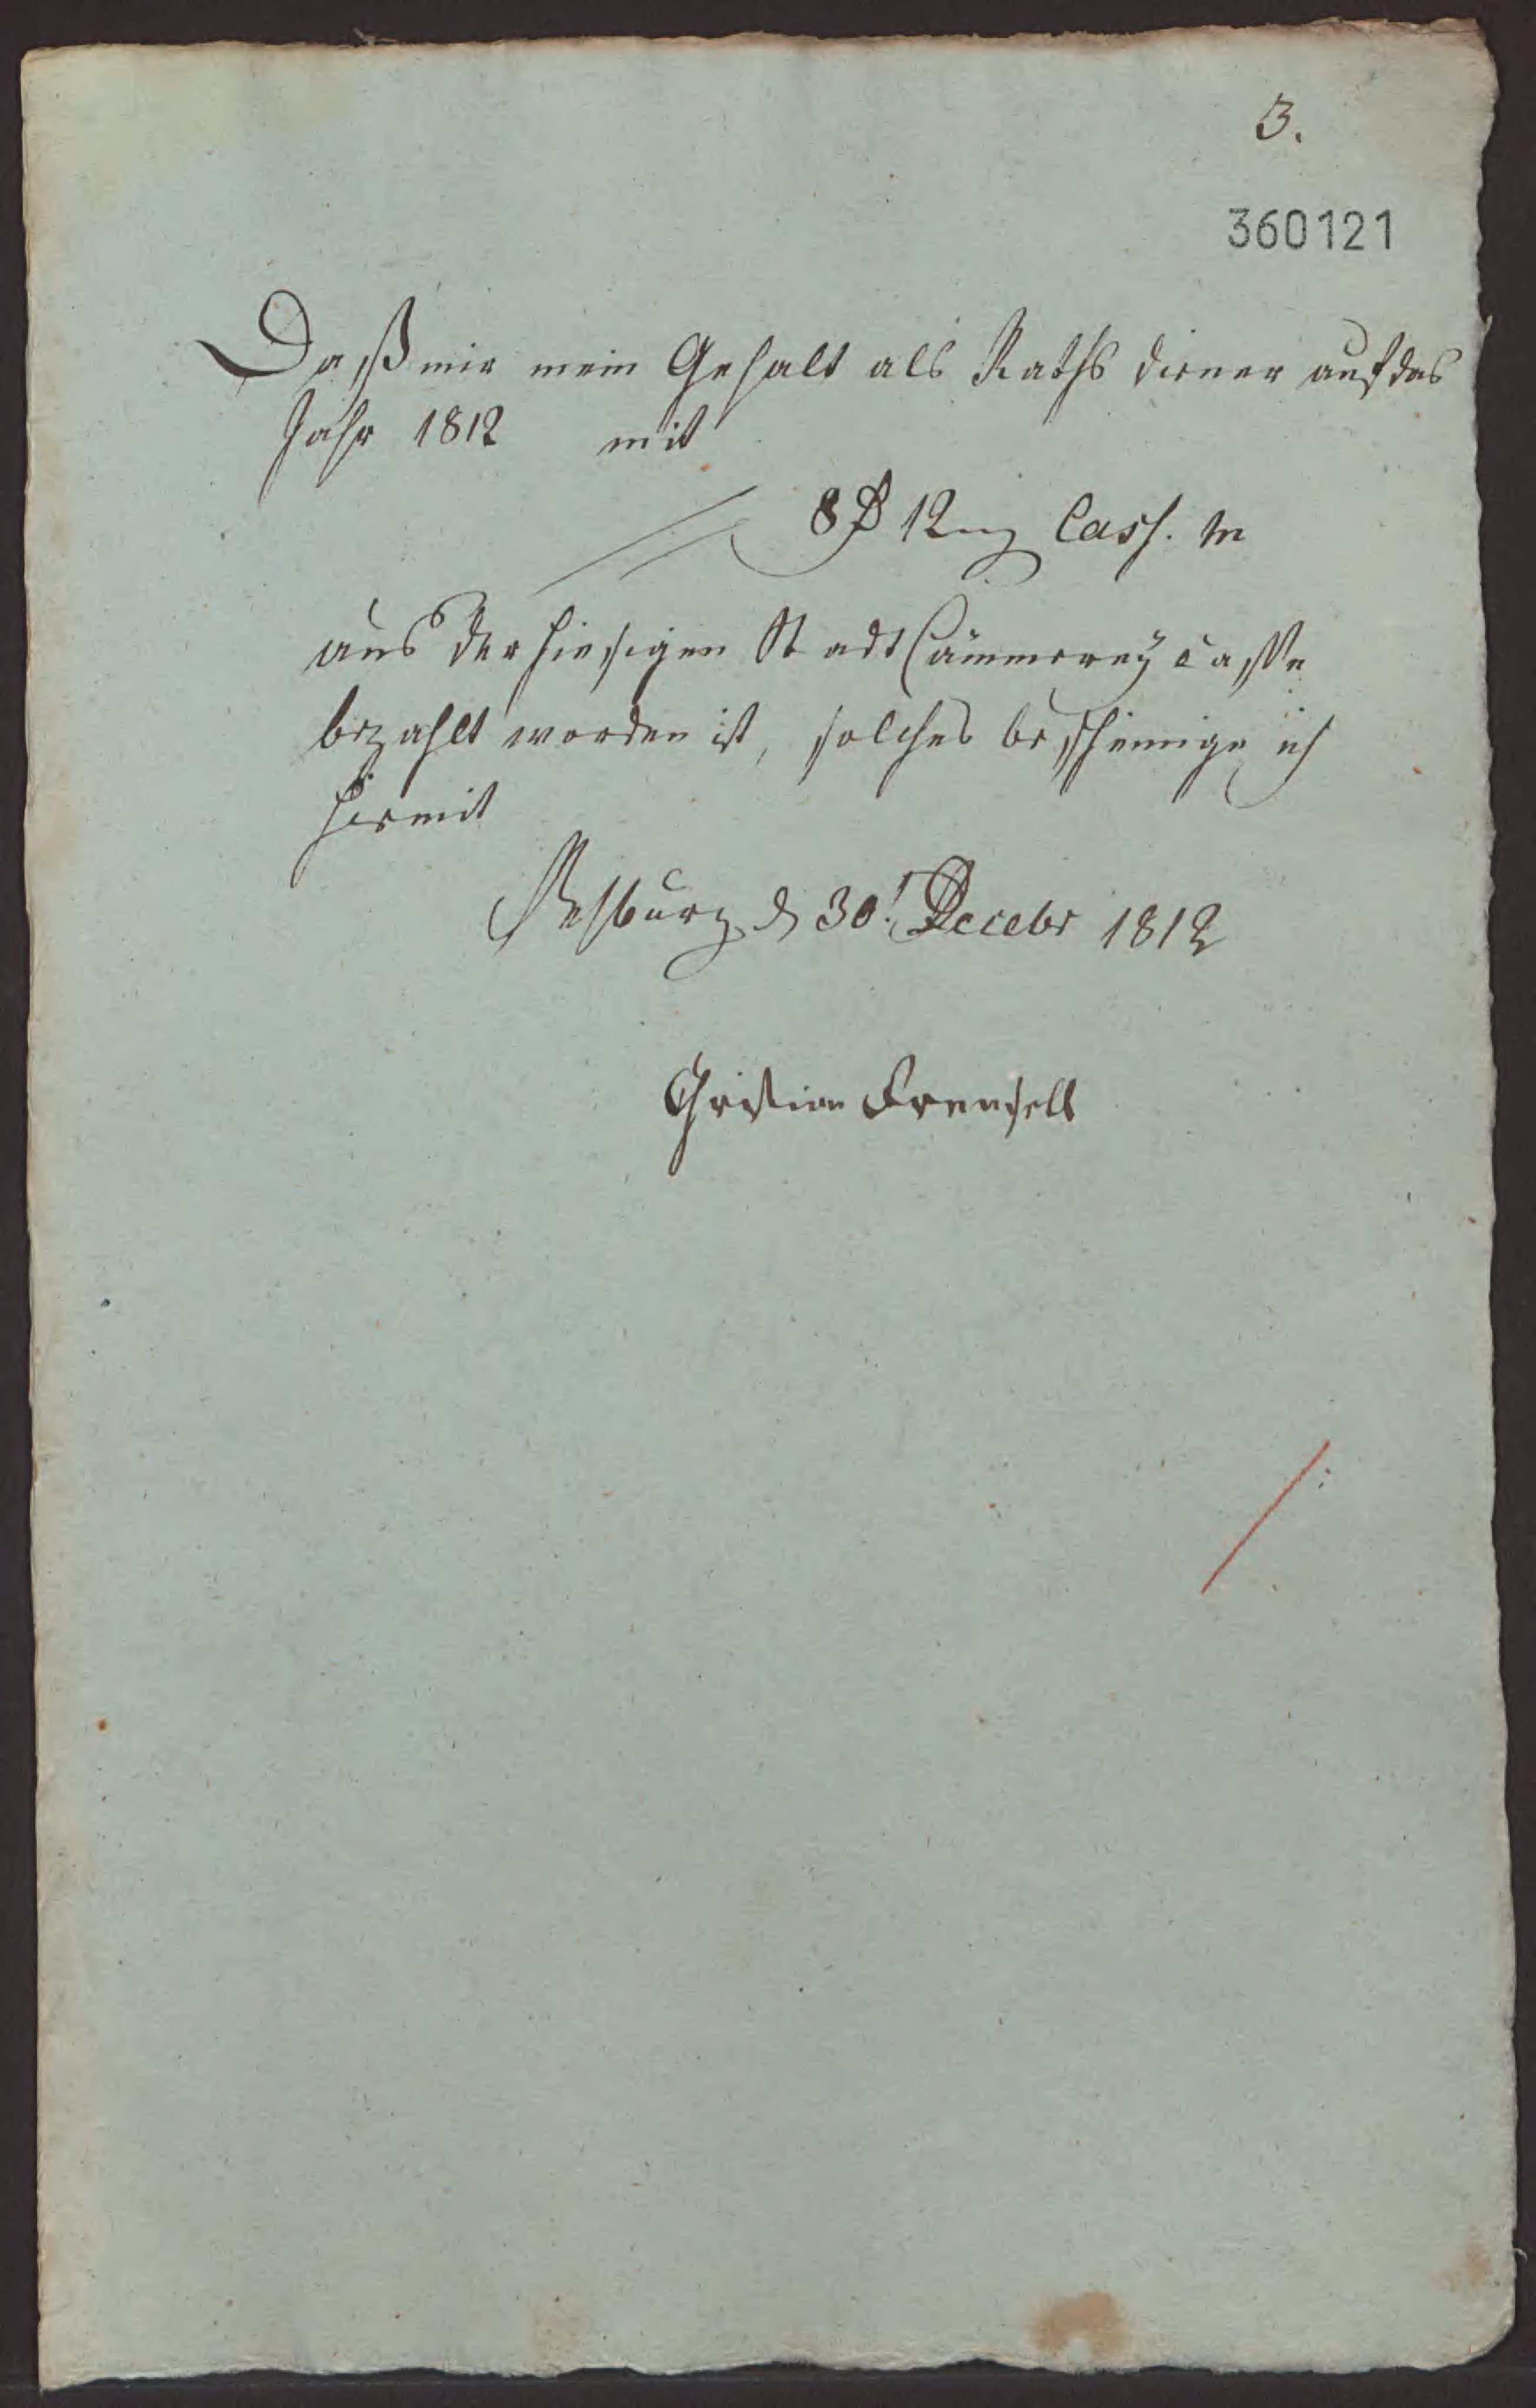 3.
360121
Daß mir mein Gehalt als Raths diener auf das
Jahr 1812 mit
8 rt 12 mg Cass. M
aus der hiesigen Stadt Cämmerey Casse
bezahlt worden ist, solches bescheinige ich
hiermit
d 30t Decebr 1812
Christian